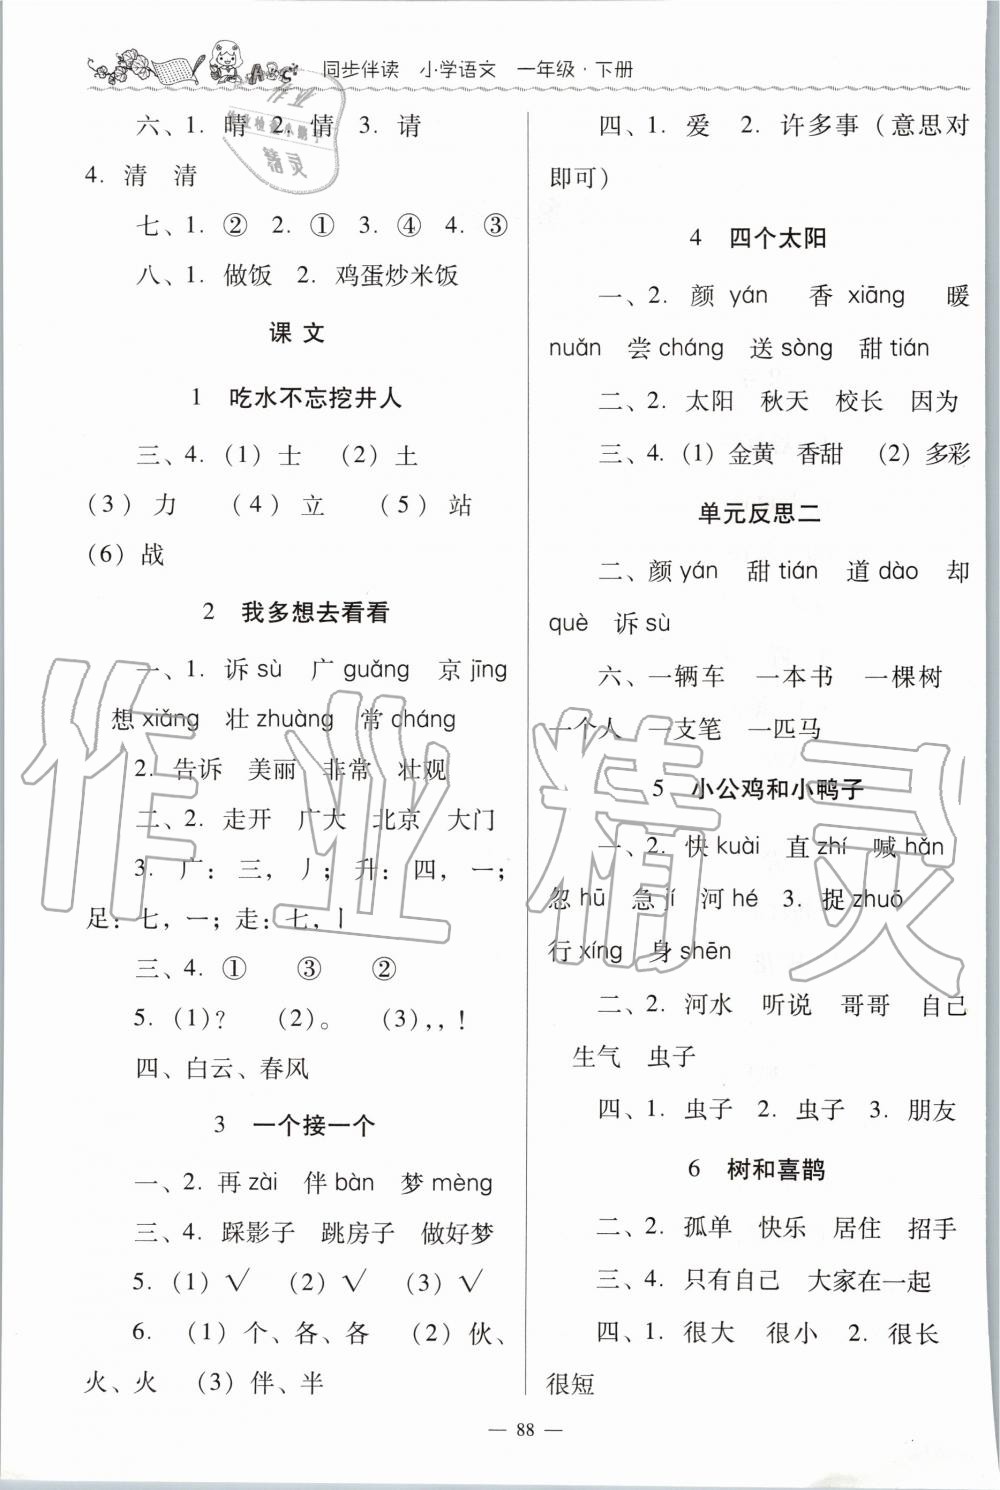 同步伴读 小学语文 一年级·下册
六、1. 晴 2. 情 3. 请
4. 清 清
七、1. ② 2. ① 3. ④ 4. ③
八、1. 做饭 2. 鸡蛋炒米饭
课 文
1 吃水不忘挖井人
三、4. (1) 士 (2) 土
(3) 力 (4) 立 (5) 站
(6) 战
2 我多想去看看
一、1. 诉 sù 广 guǎng 京 jīng
想 xiǎng 壮 zhuàng 常 cháng
2. 告诉 美丽 非常 壮观
二、2. 走开 广大 北京 大门
3. 广: 三, 丿; 升: 四, 一;
足: 七, 一; 走: 七, 丨
三、4. ① ③ ②
5. (1)? (2)。 (3),, !
四、白云、春风
3 一个接一个
一、2. 再 zài 伴 bàn 梦 mèng
三、4. 踩影子 跳房子 做好梦
5. (1) √ (2) √ (3) √
6. (1) 个、各、各 (2) 伙、
火、火 (3) 伴、半
四、1. 爱 2. 许多事 (意思对
即可)
4 四个太阳
一、2. 颜 yán 香 xiāng 暖
nuǎn 尝 cháng 送 sòng 甜 tián
二、2. 太阳 秋天 校长 因为
三、4. (1) 金黄 香甜 (2) 多彩
单元反思二
二、颜 yán 甜 tián 道 dào 却
què 诉 sù
六、一辆车 一本书 一棵树
一个人 一支笔 一匹马
5 小公鸡和小鸭子
一、2. 快 kuài 直 zhí 喊 hǎn
忽 hū 急 jí 河 hé 3. 捉 zhuō
行 xíng 身 shēn
二、2. 河水 听说 哥哥 自己
生气 虫子
四、1. 虫子 2. 虫子 3. 朋友
6 树和喜鹊
二、2. 孤单 快乐 居住 招手
三、4. 只有自己 大家在一起
四、1. 很大 很小 2. 很长
很短
— 88 —
作业精灵